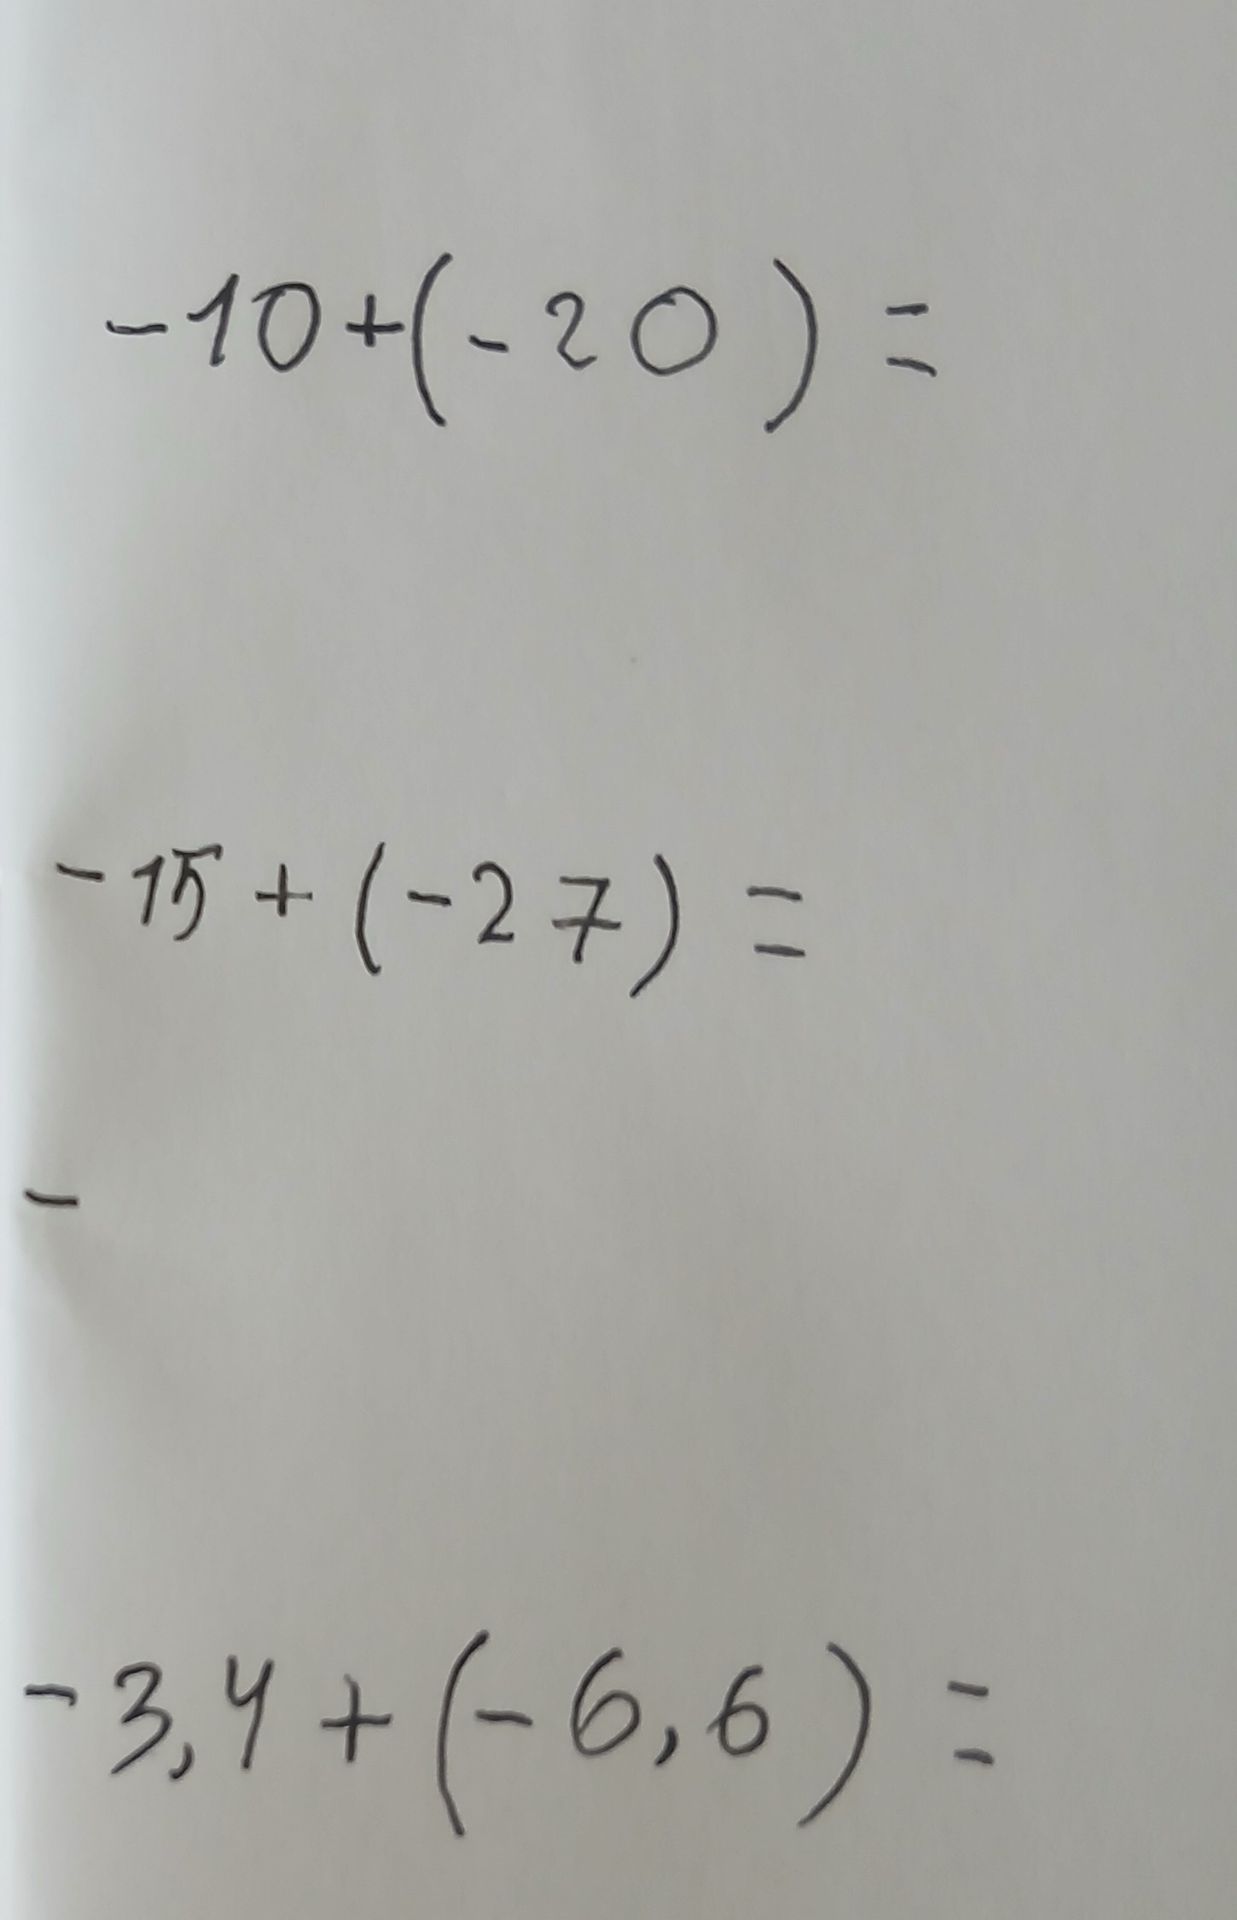 -10+(-20)=
-15+(-27)=
-
-3,4+(-6,6)=